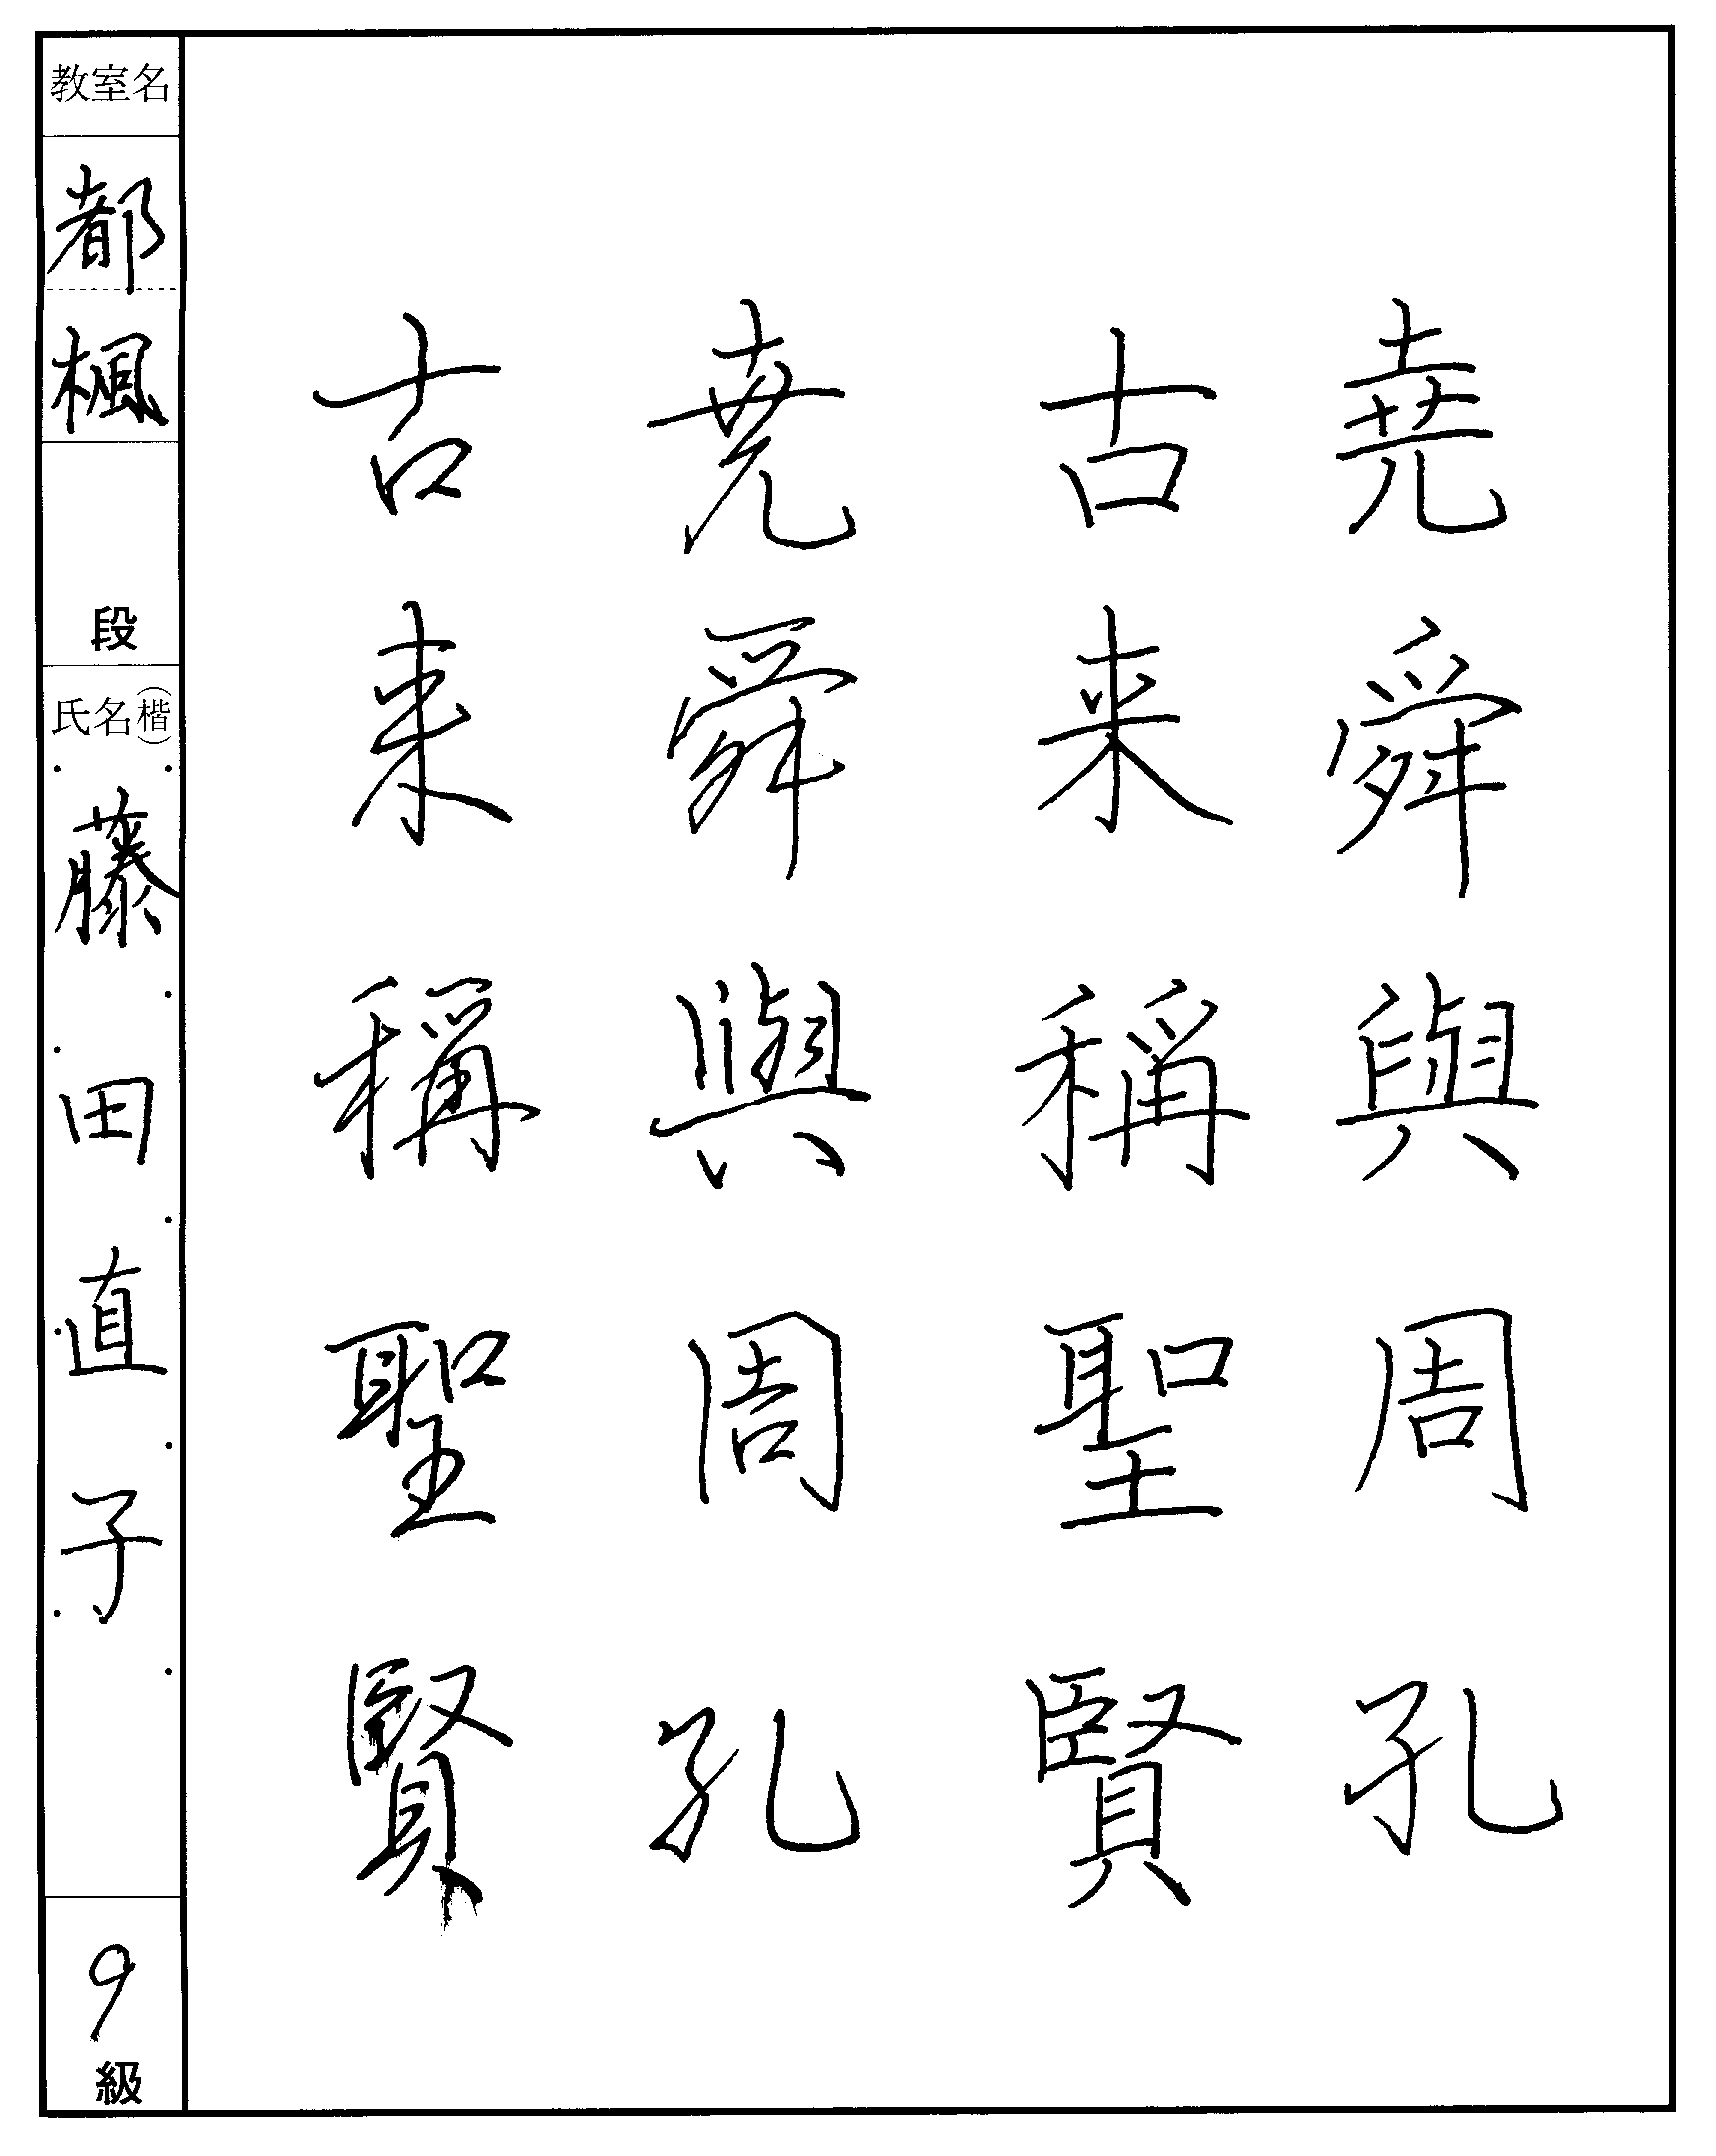 堯舜與周孔
古来稱聖賢
堯舜與周孔
古来稱聖賢
教室名
都楓
段
氏名(楷)
藤田直子
9級